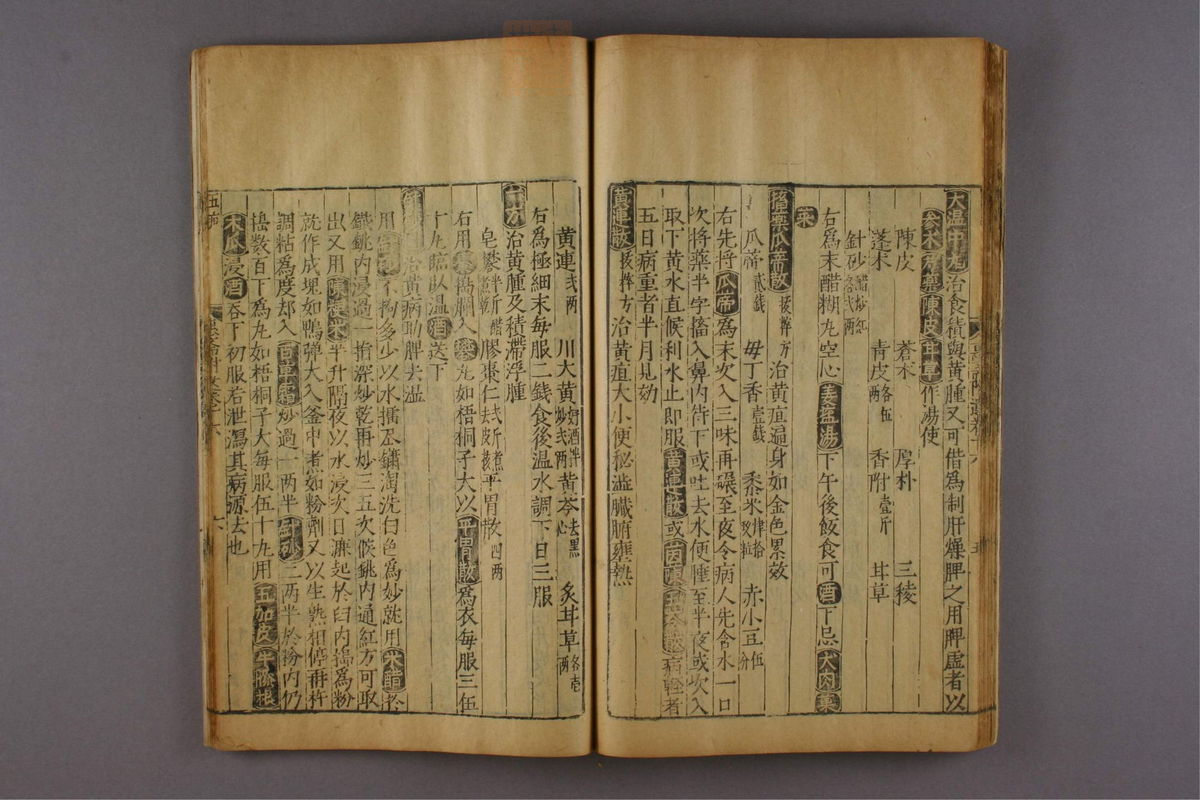 大溫中丸治食積與黃腫又可借爲制肝燥脾之用脾虛者以
參朮芍藥陳皮甘草作湯使
陳皮 蒼朮 厚朴 三稜
蓬朮 靑皮各伍兩 香附壹斤 甘草
針砂醋炒紅各貳兩
右爲末醋糊丸空心姜塩湯下午後飯食可酒下忌犬肉菓
菜
搐藥瓜帝散拔萃方治黃疸遍身如金色累效
瓜帝貳錢 毋丁香壹錢 黍米肆拾玖粒 赤小豆伍分
右先將瓜帝爲末次入三味再碾至夜令病人先含水一口
次將藥半字搐入鼻內待下或吐去水便睡至半夜或次入
取下黃水直候利水止即服黃連散或茵陳五苓散病輕者
五日病重者半月見効
黃連散拔萃方治黃疸大小便秘澁臟腑壅熱
黃連貳兩 川大黃好酒拌炒貳兩 黃芩去黑心 炙甘草各壹兩
右爲極細末每服二錢食後温水調下日三服
一方治黃腫及積滯浮腫
皂礬半斤醋 膠棗仁貳斤煮去皮核 平胃散四兩
右用棗搗爛入礬丸如梧桐子大以平胃散爲衣每服三伍
十丸臨臥温酒送下
治黃病助脾去溫
用針砂不拘多少以水擂尽鏽淘洗白色爲妙就用米醋於
鐵銚內浸過一指深炒乾再炒三五次候銚內通紅方可取
出又用陳粳米半升隔夜以水浸次日漉起於臼內搗爲粉
就作成塊如鴨彈大入釜中煮如粉劑又以生熟相停再杵
調粘爲度却入百草霜炒過一兩半針砂二兩半於粉內仍
搗數百下爲丸如梧桐子大每服伍十丸用五加皮牛膝根
木瓜浸酒吞下初服若泄瀉其病源去也